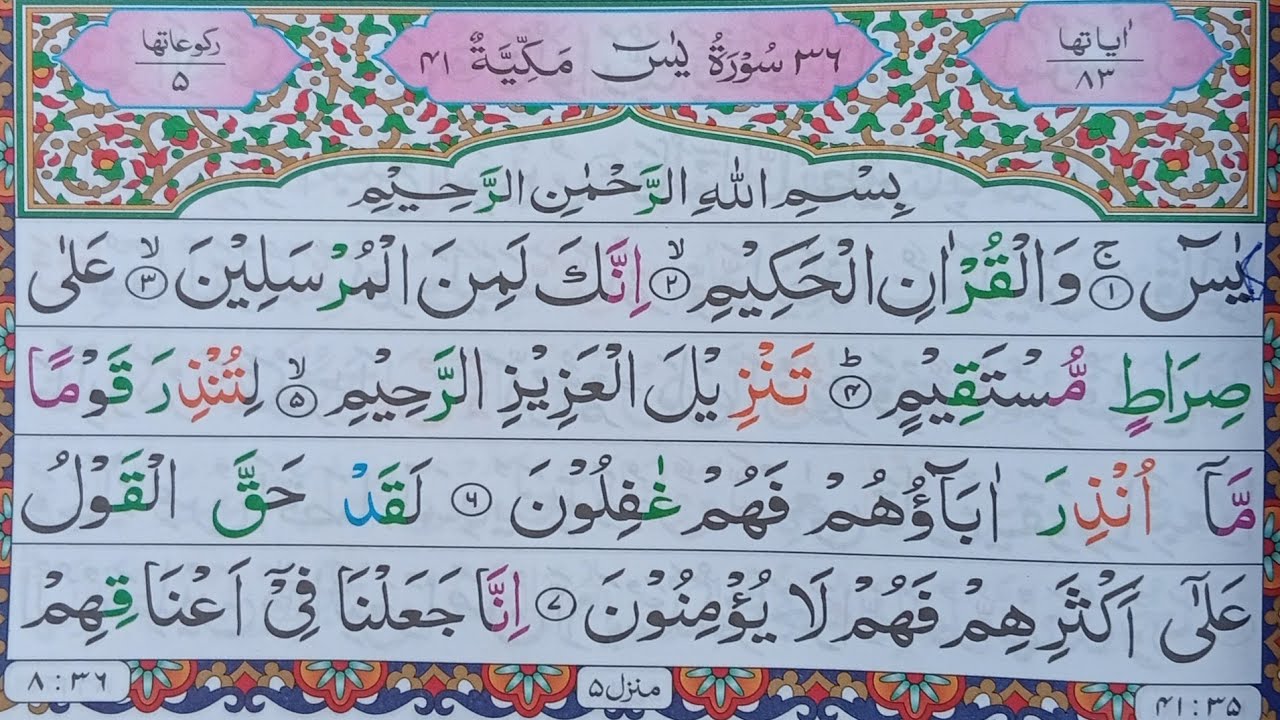 اٰیاتها
۸۳
۳٦ سُوْرَةُ یٰسٓ مَكِّيَّةٌ ۴۱
ركوعاتها
۵
بِسْمِ اللّٰهِ الرَّحْمٰنِ الرَّحِيْمِ
يٰسٓ ۚ ﴿۱﴾ وَالْقُرْاٰنِ الْحَكِيْمِ ۙ ﴿۲﴾ اِنَّكَ لَمِنَ الْمُرْسَلِيْنَ ۙ ﴿۳﴾ عَلٰى
صِرَاطٍ مُّسْتَقِيْمٍ ؕ ﴿۴﴾ تَنْزِيْلَ الْعَزِيْزِ الرَّحِيْمِ ۙ ﴿۵﴾ لِتُنْذِرَ قَوْمًا
مَّآ اُنْذِرَ اٰبَآؤُهُمْ فَهُمْ غٰفِلُوْنَ ﴿۶﴾ لَقَدْ حَقَّ الْقَوْلُ
عَلٰٓى اَكْثَرِهِمْ فَهُمْ لَا يُؤْمِنُوْنَ ﴿۷﴾ اِنَّا جَعَلْنَا فِيْٓ اَعْنَاقِهِمْ
۸ : ۳٦
منزل ۵
۴۱ : ۳۵